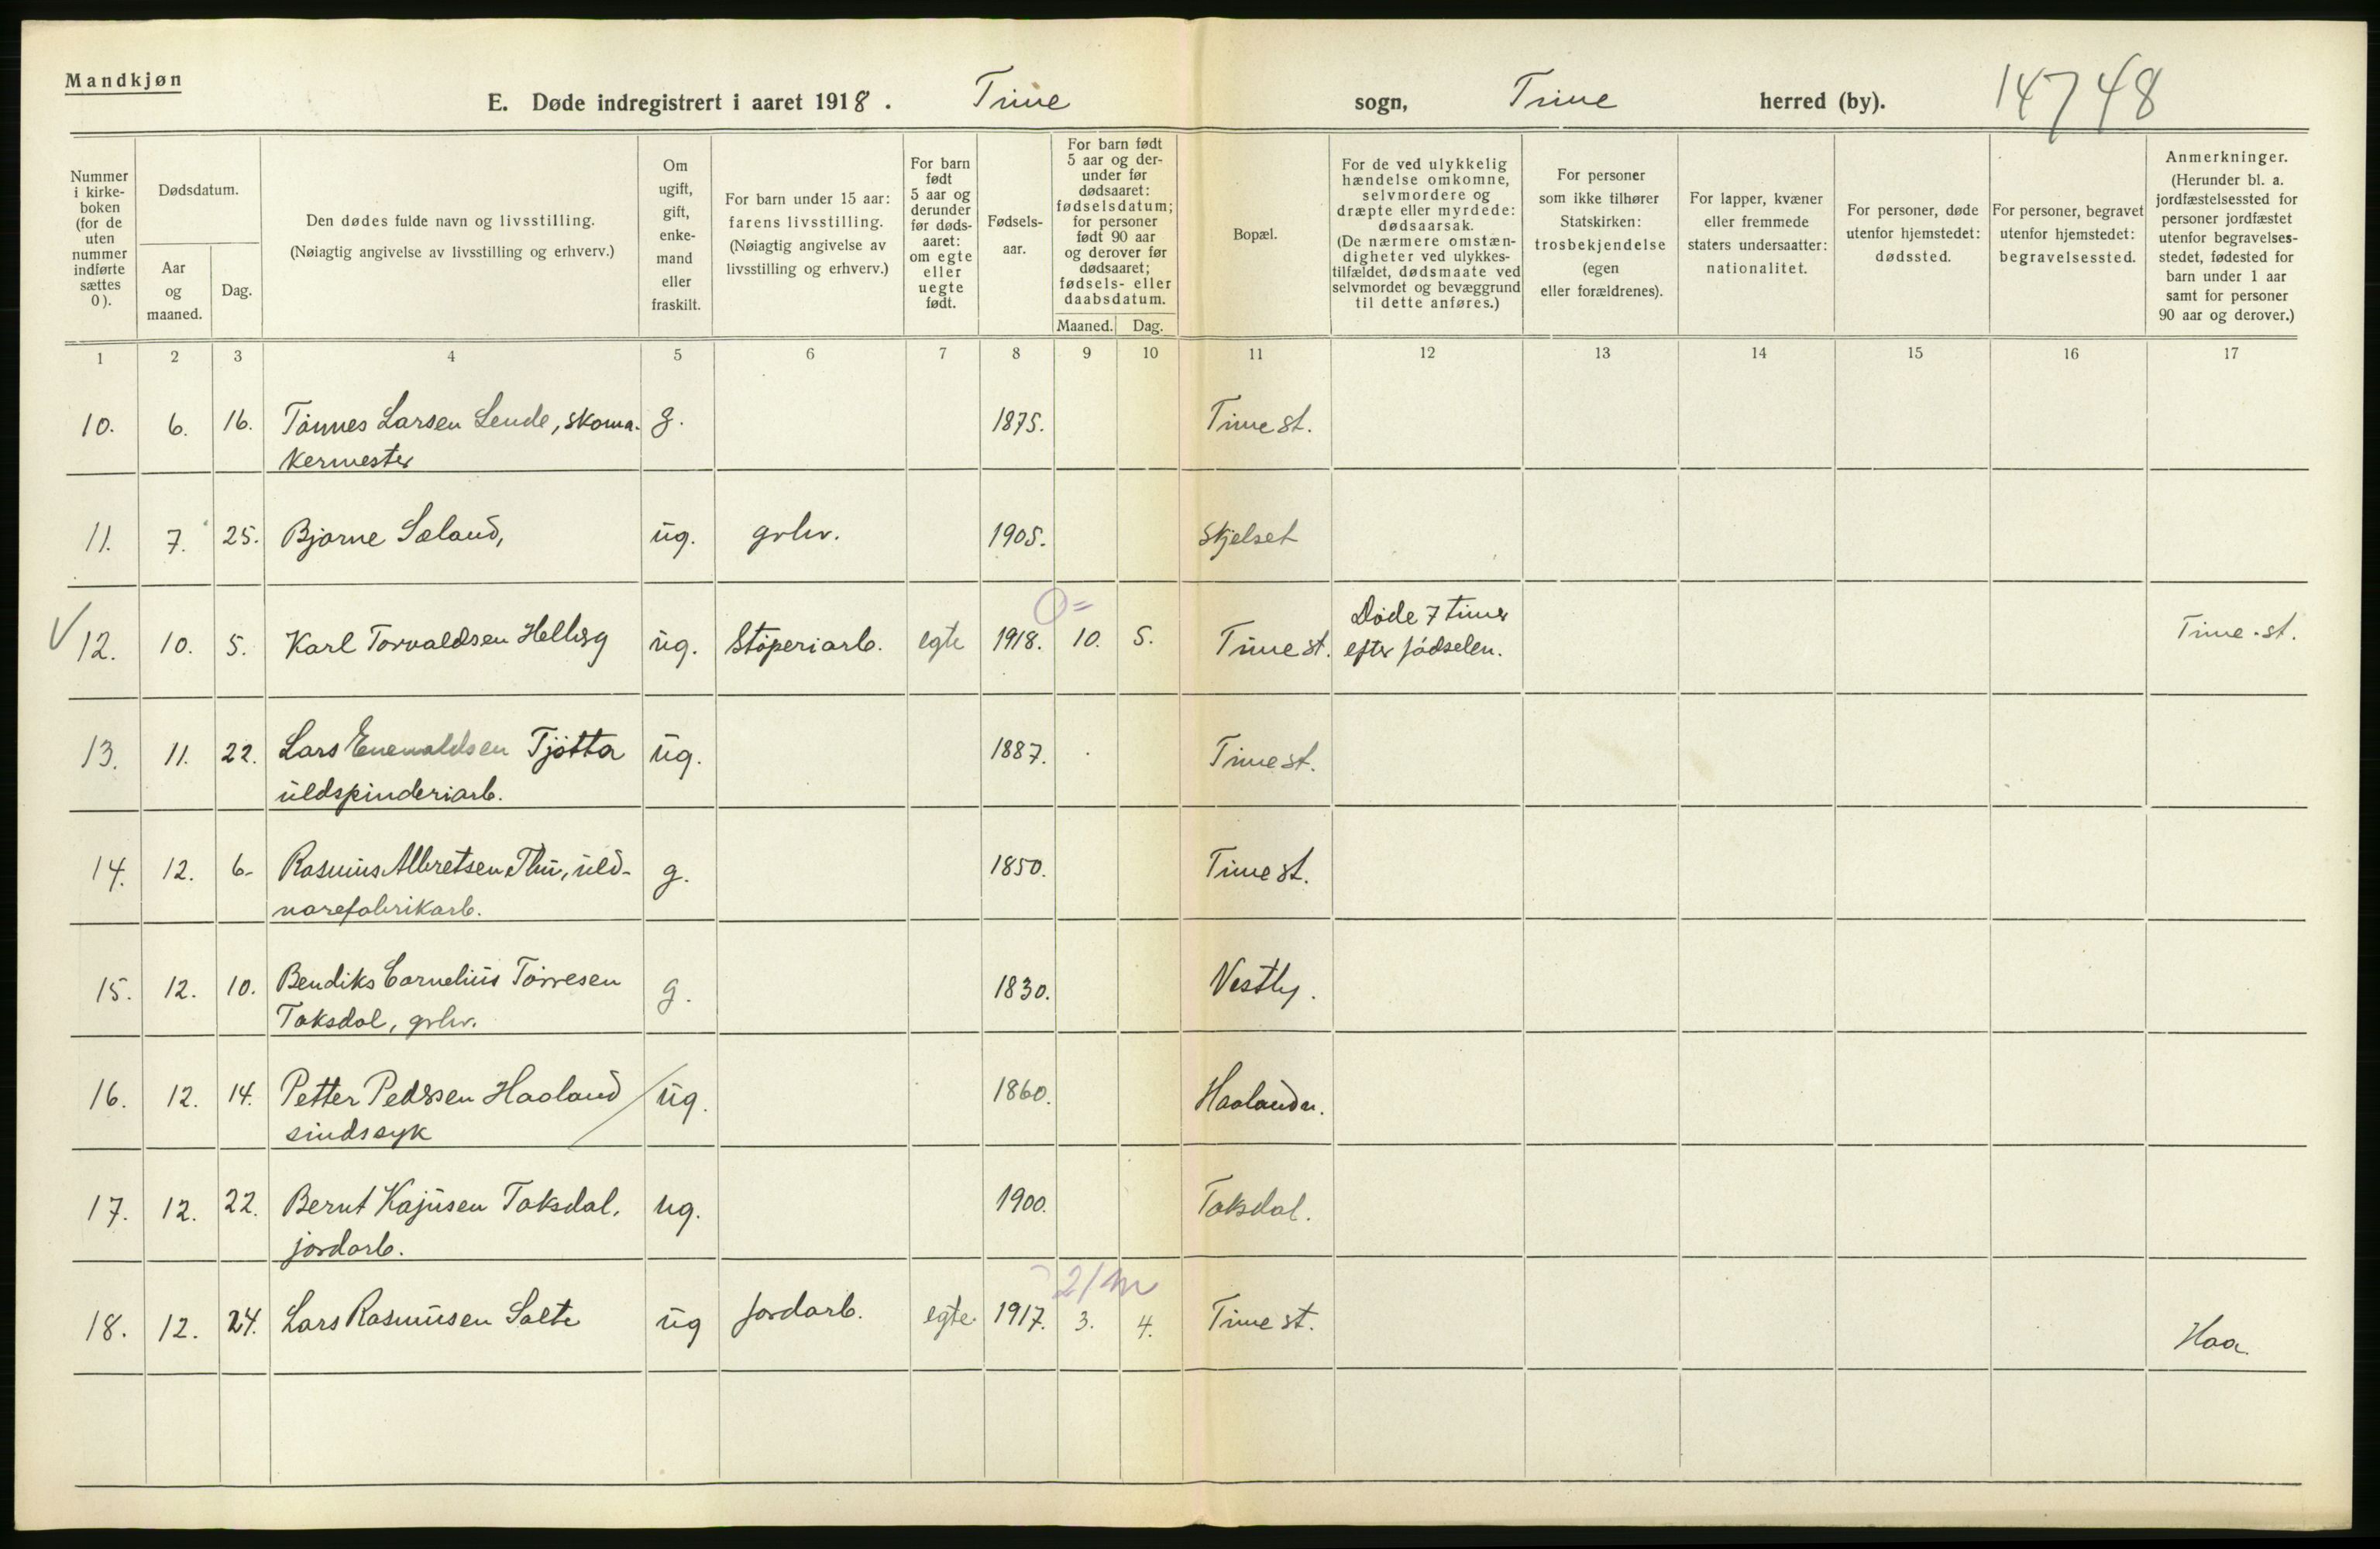 Mandkjøn
E. Døde indregistrert i aaret 1918. Time sogn, Time herred (by). 14748
Nummer i kirke-boken (for de uten nummer indførte sættes 0).
Dødsdatum.
Aar og maaned.
Dag.
Den dødes fulde navn og livsstilling.
(Nøiagtig angivelse av livsstilling og erhverv.)
Om ugift, gift, enke-mand eller fraskilt.
For barn under 15 aar: farens livsstilling. (Nøiagtig angivelse av livsstilling og erhverv.)
For barn født 5 aar og derunder før døds-aaret: om egte eller uegte født.
Fødsels-aar.
For barn født 5 aar og der-under før dødsaaret: fødselsdatum; for personer født 90 aar og derover før dødsaaret; fødsels- eller daabsdatum.
Maaned. Dag.
Bopæl.
For de ved ulykkelig hændelse omkomne, selvmordere og dræpte eller myrdede: dødsaarsak. (De nærmere omstæn-digheter ved ulykkes-tilfældet, dødsmaate ved selvmordet og bevæggrund til dette anføres.)
For personer som ikke tilhører Statskirken: trosbekjendelse (egen eller forældrenes).
For lapper, kvæner eller fremmede staters undersaatter: nationalitet.
For personer, døde utenfor hjemstedet: dødssted.
For personer, begravet utenfor hjemstedet: begravelsessted.
Anmerkninger. (Herunder bl. a. jordfæstelsessted for personer jordfæstet utenfor begravelses-stedet, fødested for barn under 1 aar samt for personer 90 aar og derover.)
1 2 3 4 5 6 7 8 9 10 11 12 13 14 15 16 17
10. 6. 16. Tønnes Larsen Lende, skoma- g. 1875. Time st.
kermester
11. 7. 25. Bjarne Sæland, ug. grbr. 1905. Skjelset
0=
Døde 7 timer
12. 10. 5. Karl Torvaldsen Helberg ug. Støperiarb. egte 1918. 10. 5. Time st. efter fødselen. Time-st.
13. 11. 22. Lars Enevaldsen Tjøtta ug. 1887. Time st.
uldspinderiarb.
14. 12. 6. Rasmus Albretsen Thu, uld- g. 1850. Time st.
varefabrikarb.
15. 12. 10. Bendiks Cornelius Torresen g. 1830. Vestly.
Taksdal, grbr.
16. 12. 14. Petter Pedersen Haaland ug. 1860. Haaland n.
sindssyk
17. 12. 22. Bernt Kajusen Taksdal, ug. 1900. Taksdal.
jordarb.
18. 12. 24. Lars Rasmusen Salte ug jordarb. egte 1917. 3. 4. Time st. Haa